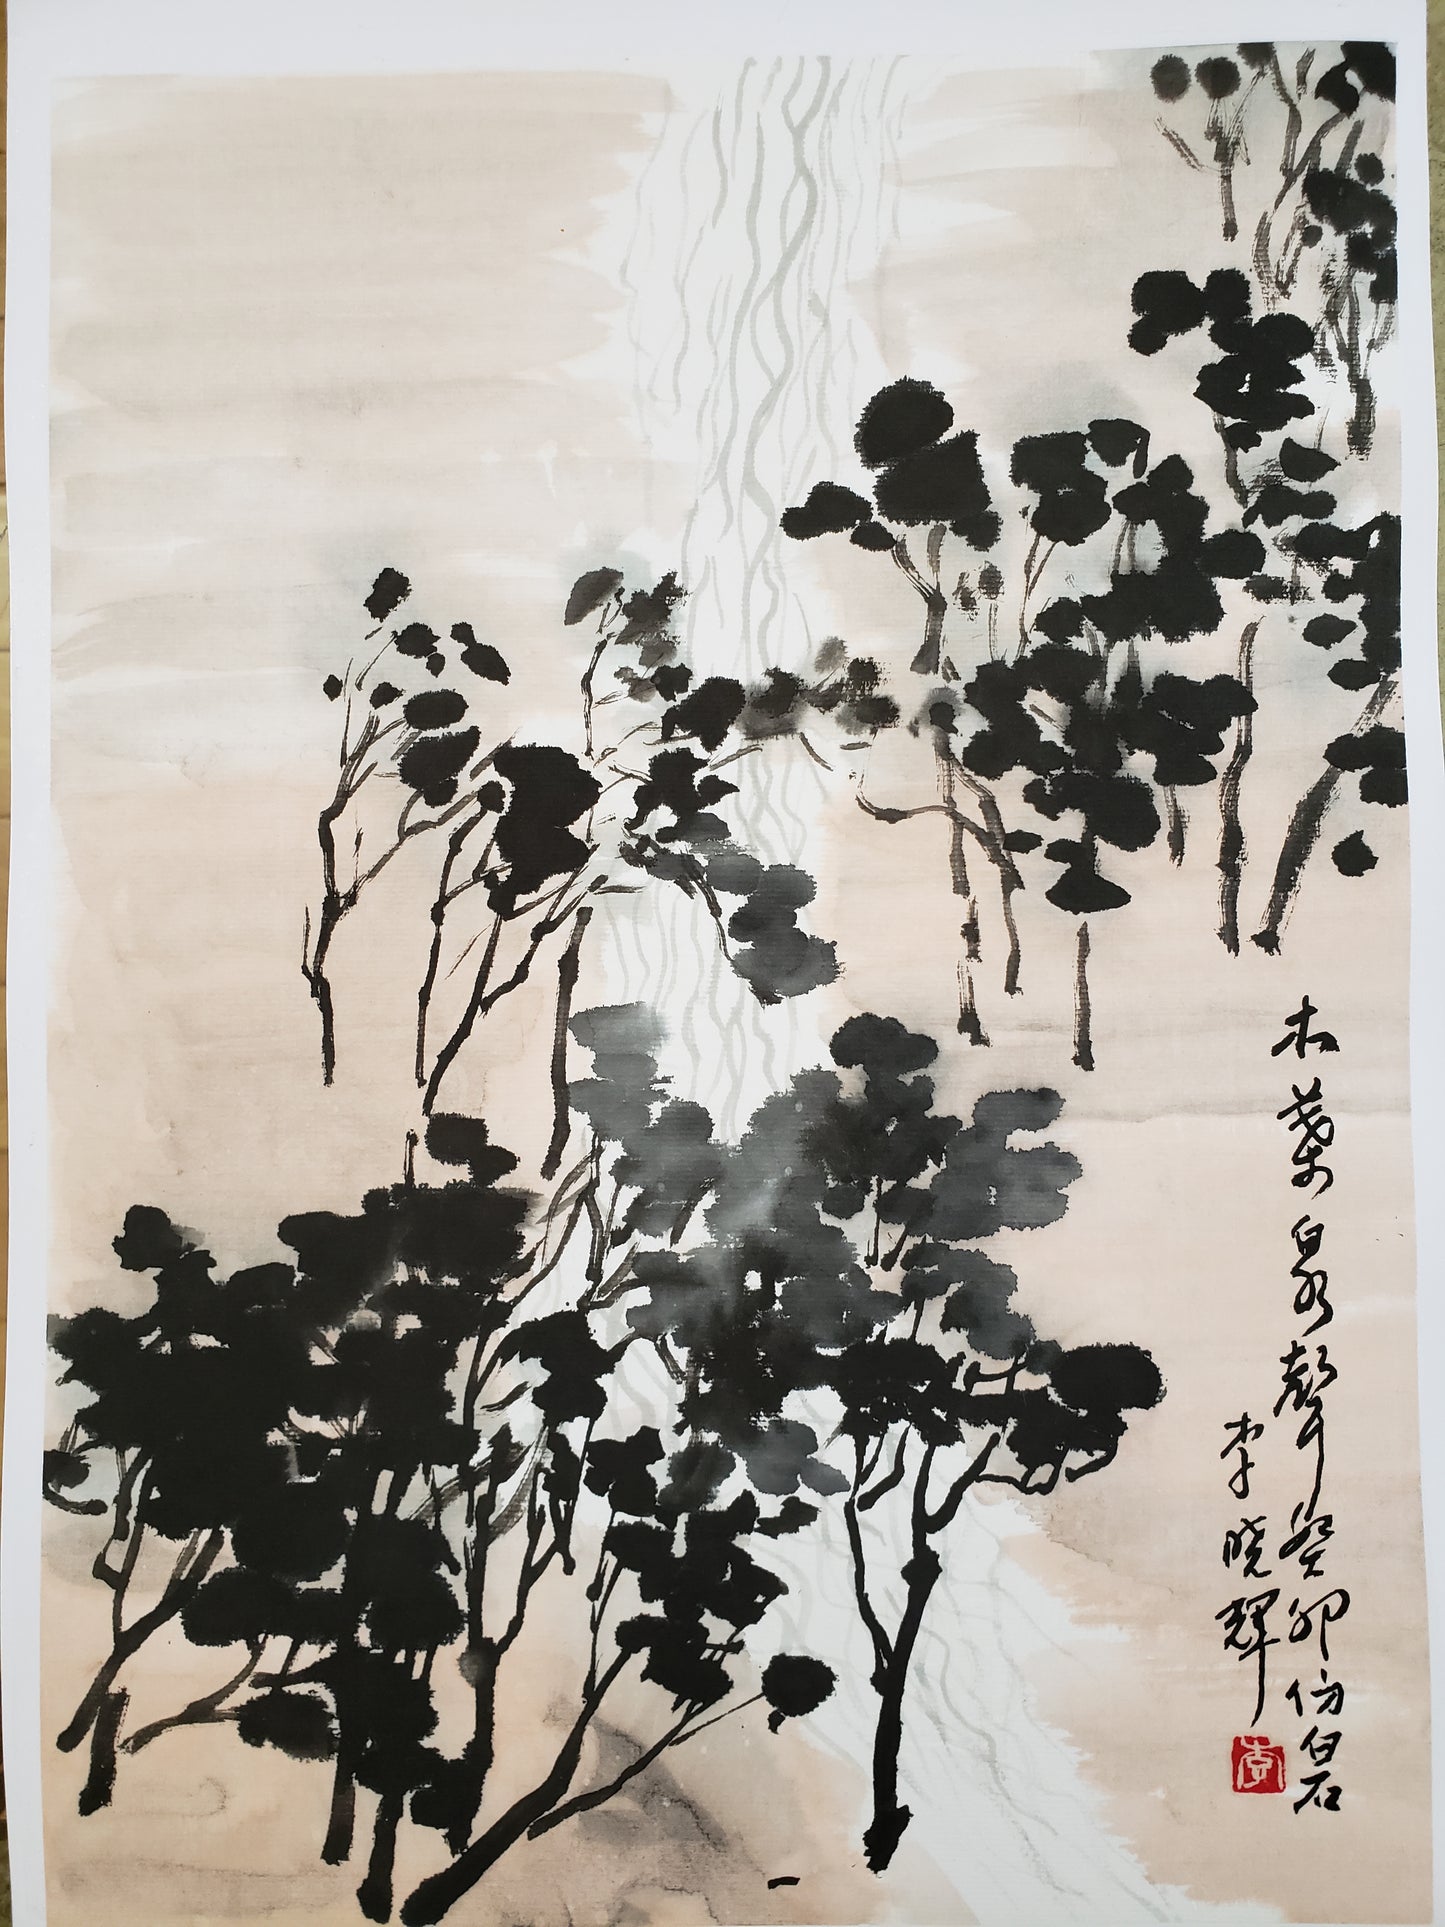 木葉泉聲癸卯仿白石
李晓辉
李